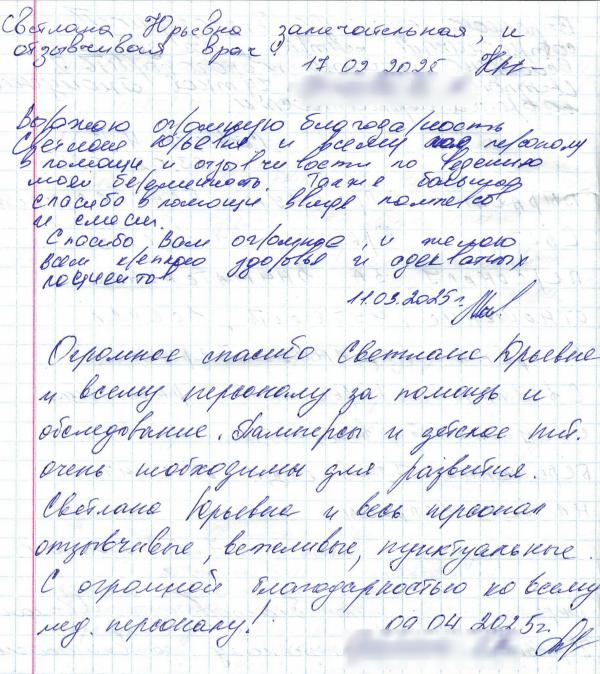 Светлана Юрьевна замечательная, и
отзывчивая врач!
17 02 2025
Вырожаю огромную благодарность
Светлане Юрьевне и всему персоналу
в помощи и отзывчивости по ведению
моей беременность. Также большое
спасибо в помощи в виде памперсов
и смеси.
Спасибо Вам огромное, и желаю
всем крепкого здоровья и адекватных
пациентов
11.03.2025г.
Огромное спасибо Светлане Юрьевне
и всему персоналу за помощь и
обследование. Памперсы и детское пит.
очень необходимы для развития.
Светлана Юрьевна и весь персонал
отзывчивые, вежливые, пунктуальные.
С огромной благодарностью ко всему
мед. персоналу!
09 04 2025г.